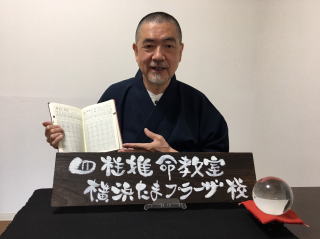 四柱推命教室
横浜たまプラーザ校